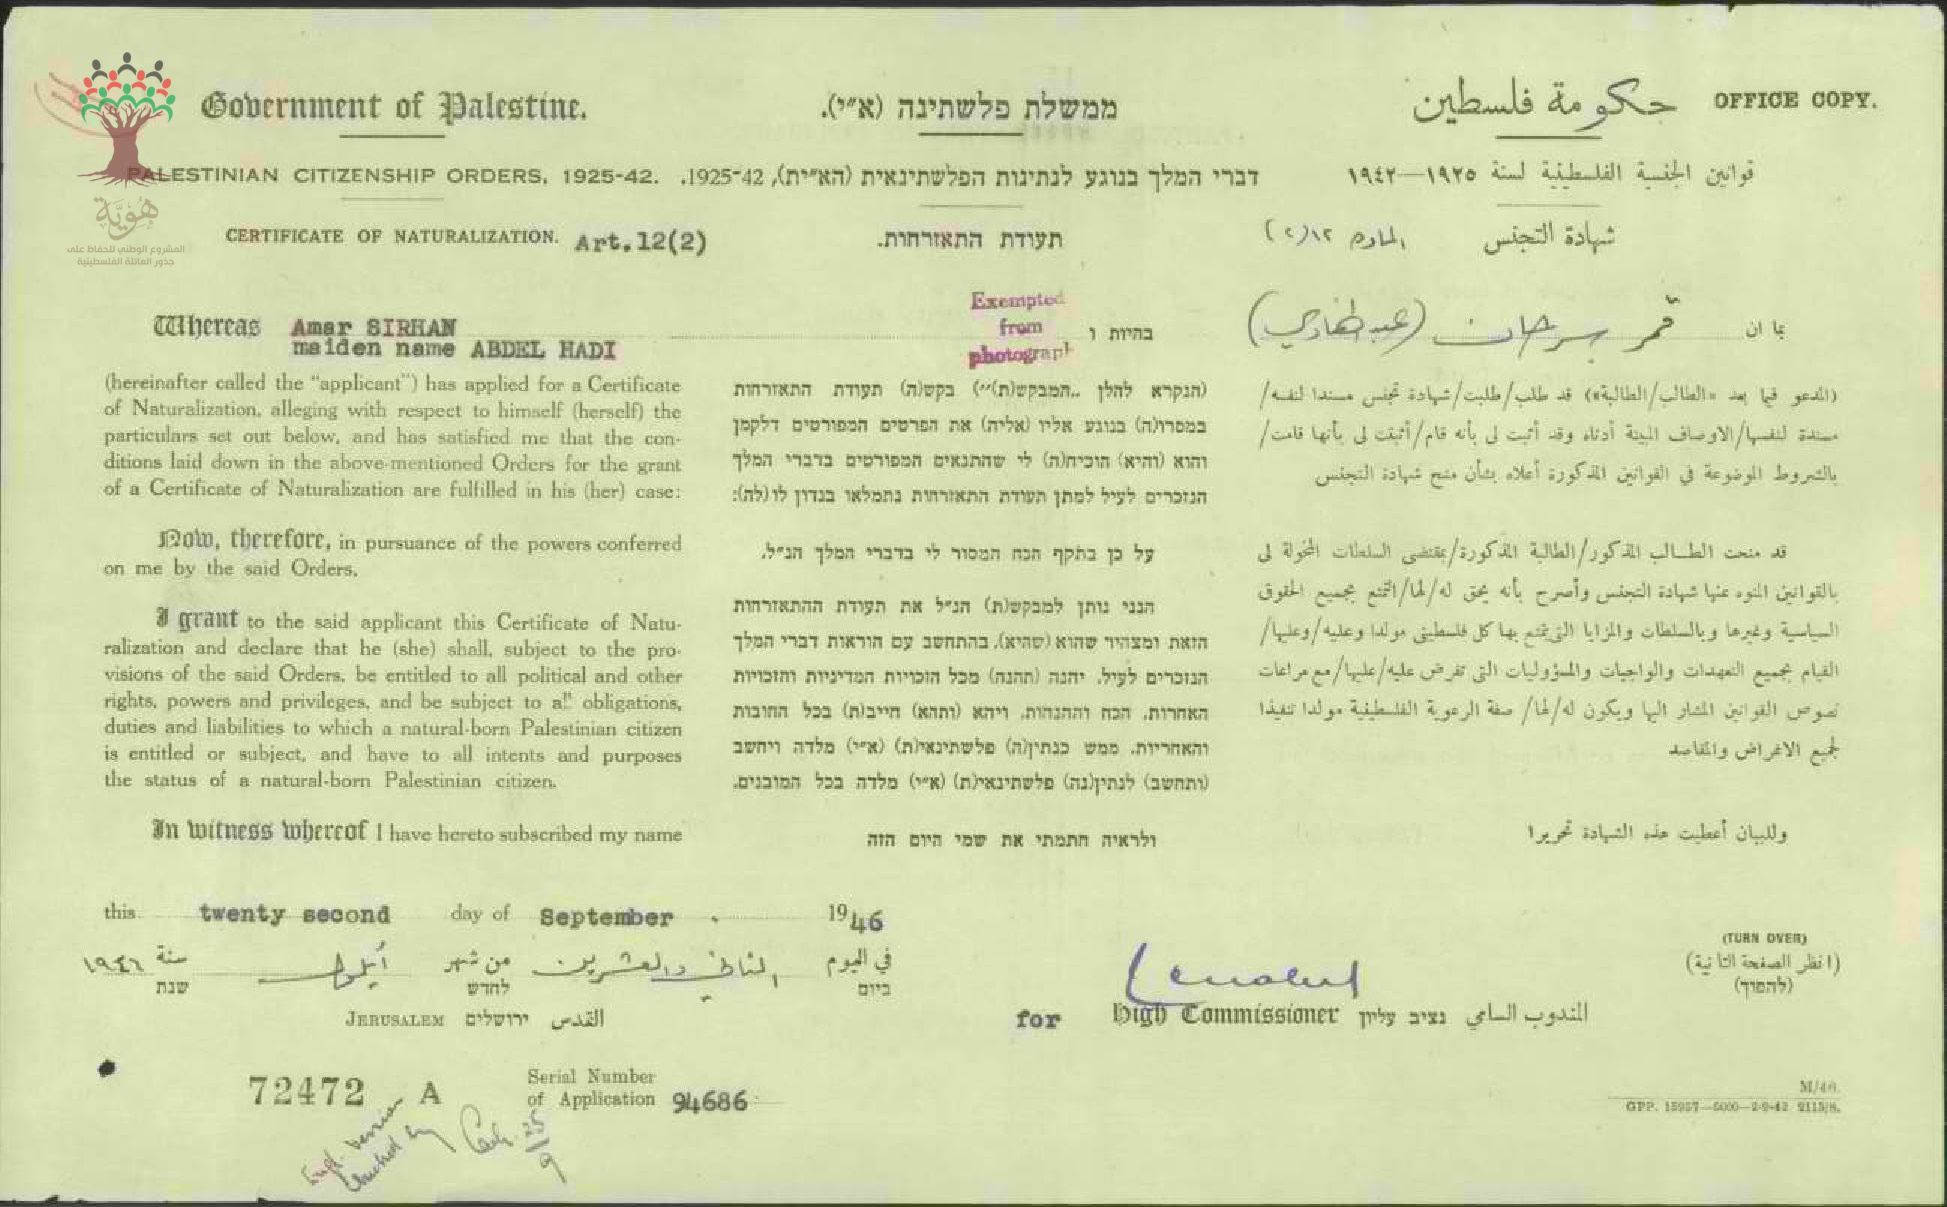 Government of Palestine.
ממשלת פלשתינה (א״י).
حكومة فلسطين
OFFICE COPY.
PALESTINIAN CITIZENSHIP ORDERS, 1925-42.
דברי המלך בנוגע לנתינות הפלשתינאית (הא״ית), 1925-42.
قوانين الجنسية الفلسطينية لسنة ١٩٢٥—١٩٤٢
هُوِيَّة
المشروع الوطني للحفاظ على
جذور العائلة الفلسطينية
CERTIFICATE OF NATURALIZATION. Art.12(2)
תעודת התאזרחות.
شهادة التجنس المادة ١٢(٢)
Exempted
from
photograph
Whereas Amar SIRHAN
maiden name ABDEL HADI
(hereinafter called the "applicant") has applied for a Certificate
of Naturalization, alleging with respect to himself (herself) the
particulars set out below, and has satisfied me that the con-
ditions laid down in the above-mentioned Orders for the grant
of a Certificate of Naturalization are fulfilled in his (her) case:
Now, therefore, in pursuance of the powers conferred
on me by the said Orders,
I grant to the said applicant this Certificate of Natu-
ralization and declare that he (she) shall, subject to the pro-
visions of the said Orders, be entitled to all political and other
rights, powers and privileges, and be subject to all obligations,
duties and liabilities to which a natural-born Palestinian citizen
is entitled or subject, and have to all intents and purposes
the status of a natural-born Palestinian citizen.
In witness whereof I have hereto subscribed my name
בהיות ו
(הנקרא להלן ״המבקש(ת)״) בקש(ה) תעודת התאזרחות
במסרו(ה) בנוגע אליו (אליה) את הפרטים המפורטים דלקמן
והוא (והיא) הוכיח(ה) לי שהתנאים המפורטים בדברי המלך
הנזכרים לעיל למתן תעודת התאזרחות נתמלאו בנדון לו (לה):
על כן בתקף הכח המסור לי בדברי המלך הנ״ל.
הנני נותן למבקש(ת) הנ״ל את תעודת ההתאזרחות
הזאת ומצהיר שהוא (שהיא), בהתחשב עם הוראות דברי המלך
הנזכרים לעיל, יהנה (תהנה) מכל הזכויות המדיניות והזכויות
האחרות, הכח וההנהות, ויהא (ותהא) חייב(ת) בכל החובות
והאחריות, ממש כנתין(ה) פלשתינאי(ת) (א״י) מלדה ויחשב
(ותחשב) לנתין(נה) פלשתינאי(ת) (א״י) מלדה בכל המובנים.
ולראיה חתמתי את שמי היום הזה
بما ان قمر سرحان (عبد الهادي)
(المدعو فيما بعد «الطالب/الطالبة») قد طلب/طلبت/شهادة تجنس مسندا لنفسه/
مسندة لنفسها/الاوصاف المبينة أدناه وقد أثبت لي بأنه قام/أثبتت لي بأنها قامت/
بالشروط الموضوعة في القوانين المذكورة أعلاه بشأن منح شهادة التجنس
قد منحت الطالب المذكور/الطالبة المذكورة/بمقتضى السلطات المخولة لى
بالقوانين المنوه عنها شهادة التجنس وأصرح بأنه يحق له/لها/التمتع بجميع الحقوق
السياسية وغيرها وبالسلطات والمزايا التى يتمتع بها كل فلسطينى مولدا وعليه/وعليها/
القيام بجميع التعهدات والواجبات والمسؤوليات التى تفرض عليه/عليها/مع مراعات
نصوص القوانين المشار اليها ويكون له/لها/ صفة الرعوية الفلسطينية مولدا تنفيذا
لجميع الاغراض والمقاصد
وللبيان أعطيت هذه الشهادة تحريرا
this twenty second day of September 1946
في اليوم الثاني والعشرين من شهر أيلول سنة ١٩٤٦
ביום לחדש שנת
JERUSALEM ירושלים القدس
for High Commissioner נציב עליון المندوب السامي
(TURN OVER)
(انظر الصفحة الثانية)
(להפוך)
72472 A
Serial Number
of Application 94686
25/9
M/46.
GPP. 15957—5000—2-9-42 2115/S.